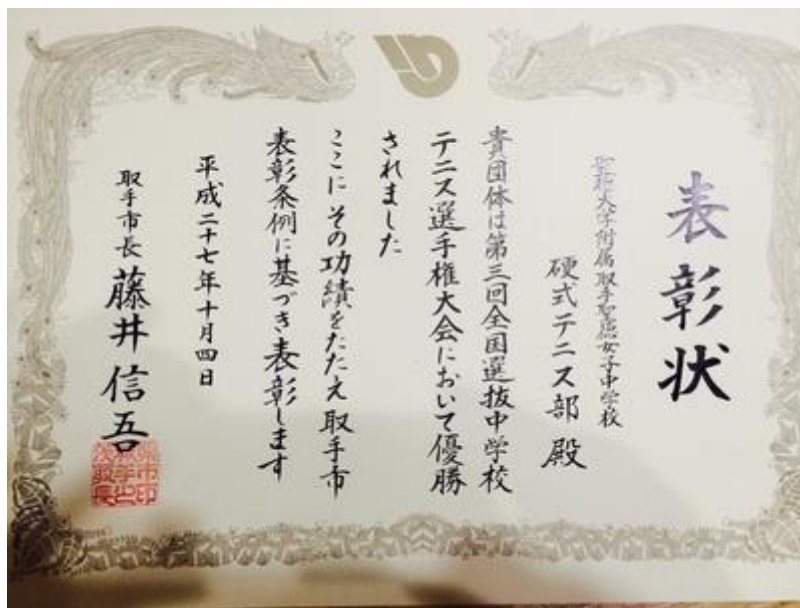 表彰状
聖徳大学附属取手聖徳女子中学校
硬式テニス部 殿
貴団体は第三回全国選抜中学校
テニス選手権大会において優勝
されました
ここにその功績をたたえ取手市
表彰条例に基づき表彰します
平成二十七年十月四日
取手市長 藤井信吾